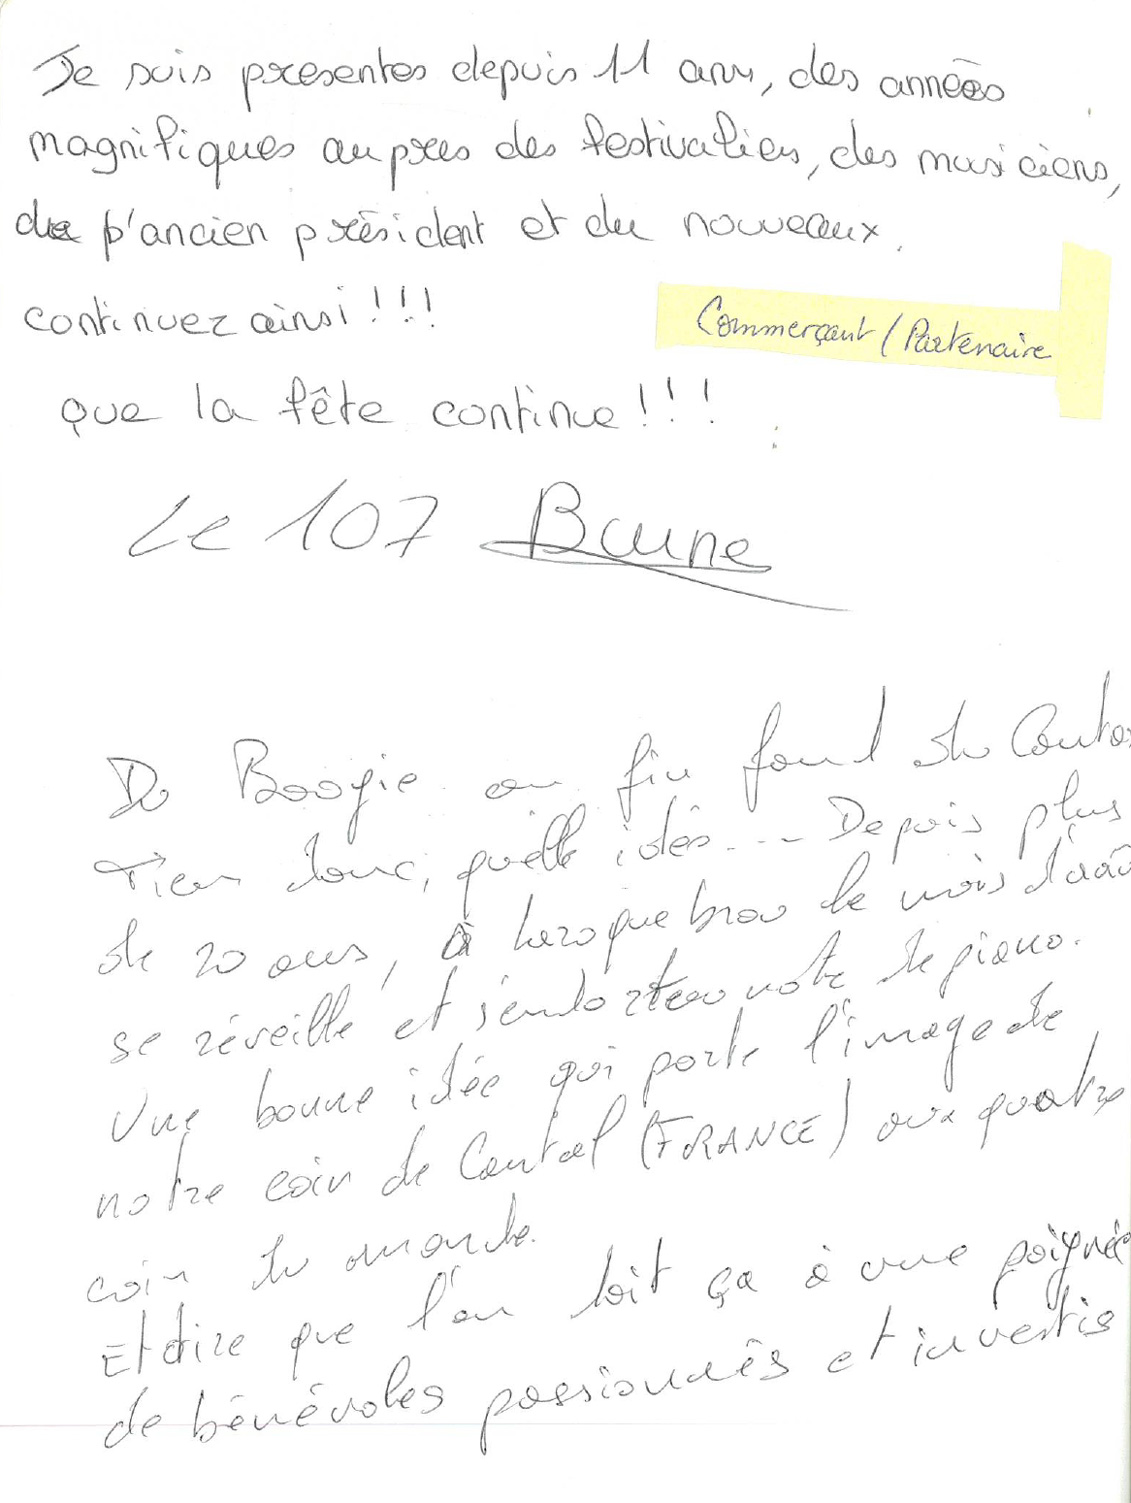 Je suis presentes depuis 11 ans, des années
magnifiques aupres des festivaliers, des musiciens,
de l'ancien président et du nouveaux.
continuez ainsi!!!
Commerçant / Partenaire
que la fête continue!!!
Le 107
Du Boogie au fin fond du Canta
Tien donc, quelle idée... Depuis plus
de 20 ans, à Laroquebrou le mois d'aoû
se réveille et s'endort en note de piano.
Une bonne idée qui porte l'image de
notre coin de Cantal (FRANCE) aux quatre
coin du monde.
Et dire que l'on doit ça à une poignée
de bénévoles passionnés et investis